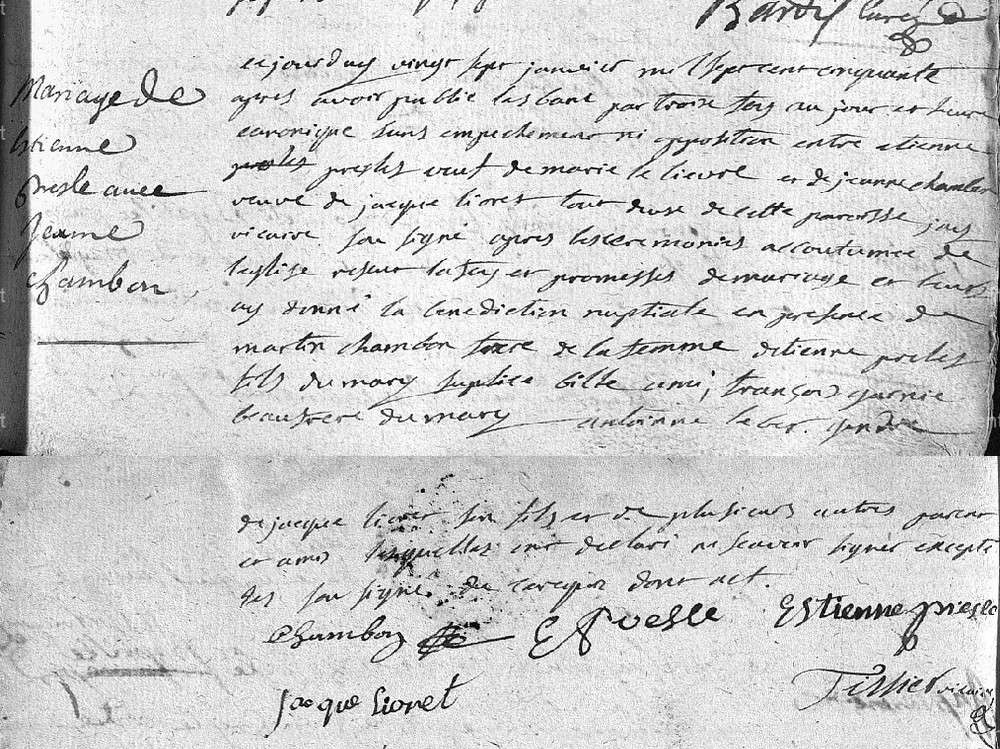 Bardi curé
Mariage de
Estienne
presle avec
Jeanne
chambon
cejourduy vingt sept janvier mil sept cent cinquante
apres avoir publie les bans par trois fois au jour et heure
canonique sans empechement ni opposition entre etienne
presles veuf de marie le lievre et de jeanne chambon
veuve de jacque lioret tout deux de cette paroisse jay
vicaire sou signé apres les ceremonies accoutumée de
leglise reseut la foy et promesses de mariage et leurs
ay donné la benediction nuptiale en presence de
martin chambon frere de la femme detienne presles
fils du mary suplice bille ami, françois garnie
beaufrere du mary antoinne leber gendre
de jacque lioret son fils et de plusieurs autres parent
et amis lesquelles ont declaré ne scavoir signer excepté
les sou signé de ce requis dont act.
Chambon E Presle Estienne presle
Jacque Lioret Tissier vicaire